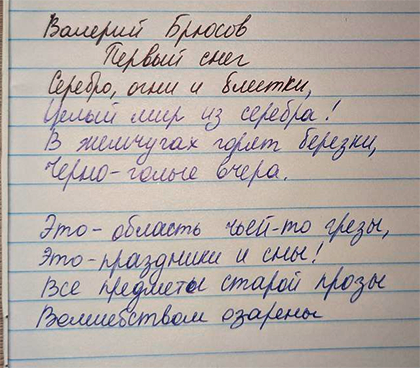 Валерий Брюсов
Первый снег
Серебро, огни и блестки,
Целый мир из серебра!
В жемчугах горят березки,
Черно-голые вчера.
Это - область чьей-то грезы,
Это - праздники и сны!
Все предметы старой прозы
Волшебством озарены